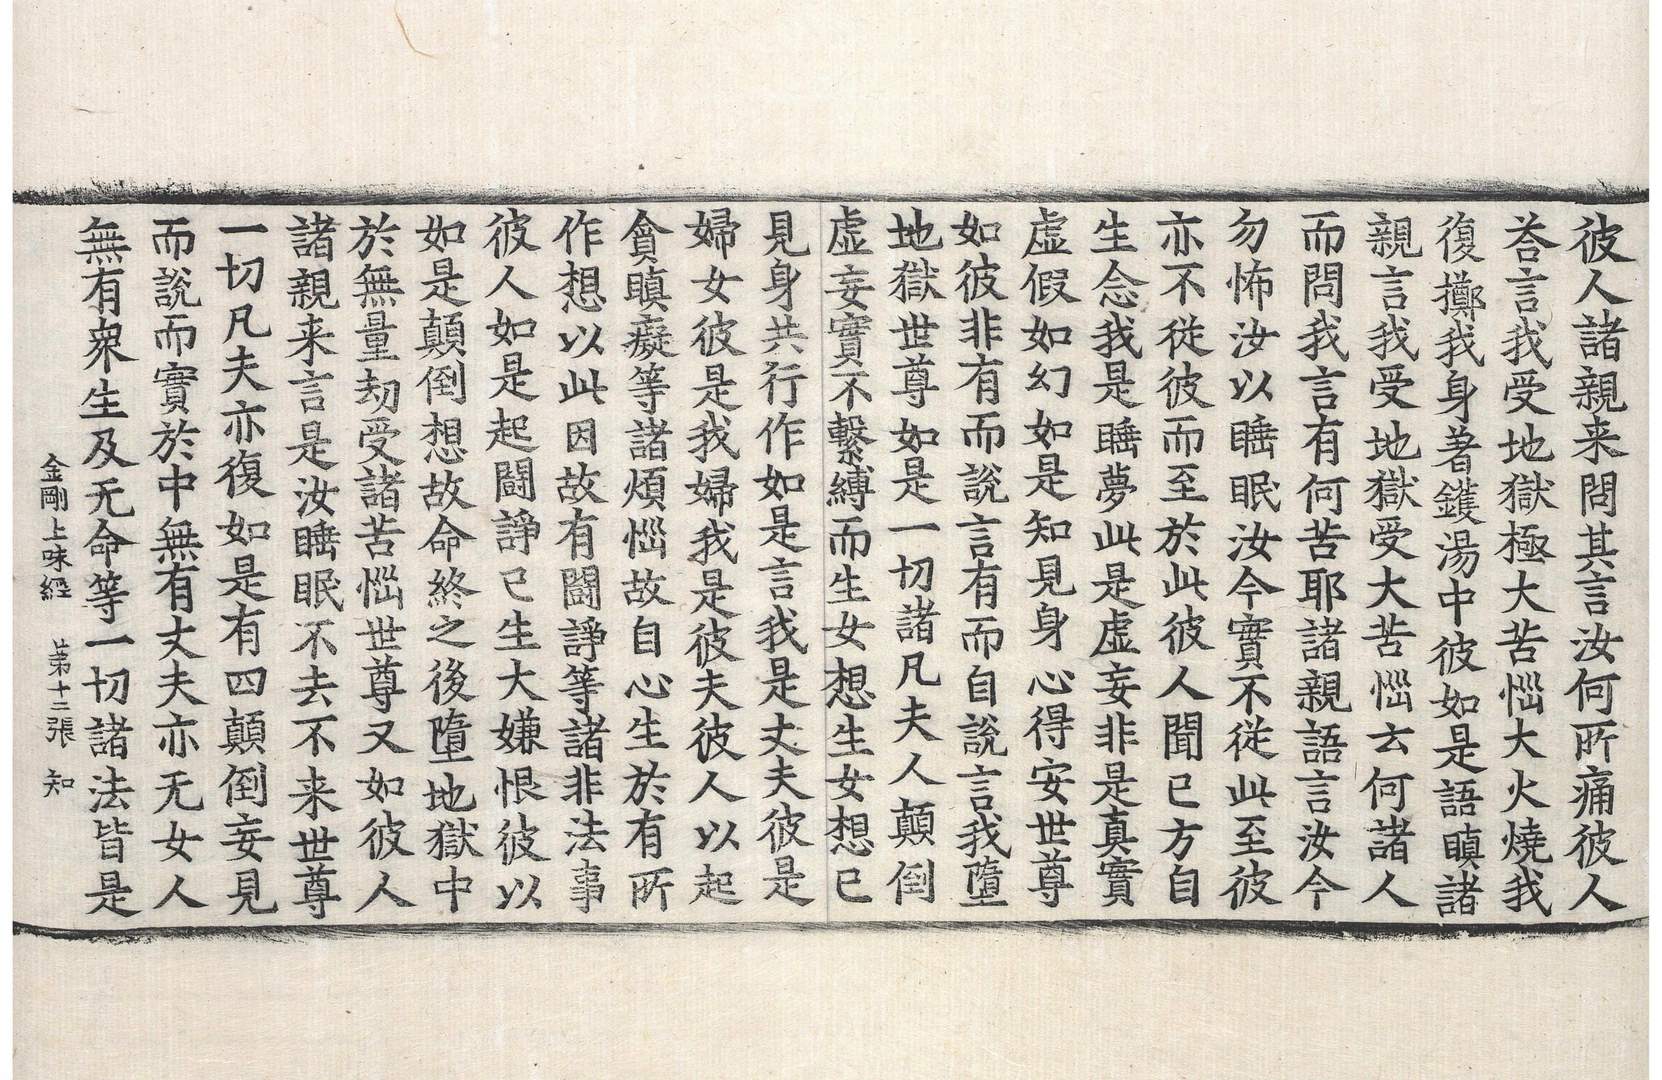 彼人諸親来問其言汝何所痛彼人
荅言我受地獄極大苦惱大火燒我
復擲我身著鑊湯中彼如是語瞋諸
親言我受地獄受大苦惱云何諸人
而問我言有何苦耶諸親語言汝今
勿怖汝以睡眠汝今實不従此至彼
亦不従彼而至於此彼人聞已方自
生念我是睡夢此是虛妄非是真實
虛假如幻如是知見身心得安世尊
如彼非有而說言有而自說言我墮
地獄世尊如是一切諸凡夫人顛倒
虛妄實不繫縛而生女想生女想已
見身共行作如是言我是丈夫彼是
婦女彼是我婦我是彼夫彼人以起
貪瞋癡等諸煩惱故自心生於有所
作想以此因故有闘諍等諸非法事
彼人如是起闘諍已生大嫌恨彼以
如是顛倒想故命終之後墮地獄中
於無量劫受諸苦惱世尊又如彼人
諸親来言是汝睡眠不去不来世尊
一切凡夫亦復如是有四顛倒妄見
而說而實於中無有丈夫亦无女人
無有衆生及无命等一切諸法皆是
金剛上味經 第十二張 知